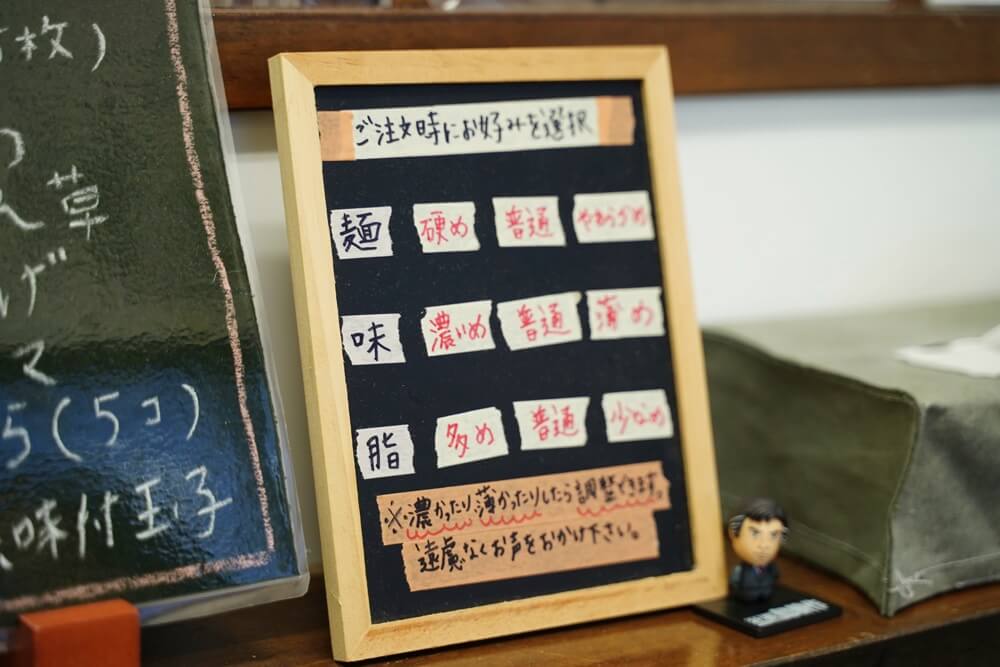 枚)
草
げ
マ
5(5コ)
味付玉子
ご注文時にお好みを選択
麺 硬め 普通 やわらかめ
味 濃いめ 普通 薄め
脂 多め 普通 少なめ
※濃かったり薄かったりしたら調整できます。
遠慮なくお声をおかけ下さい。